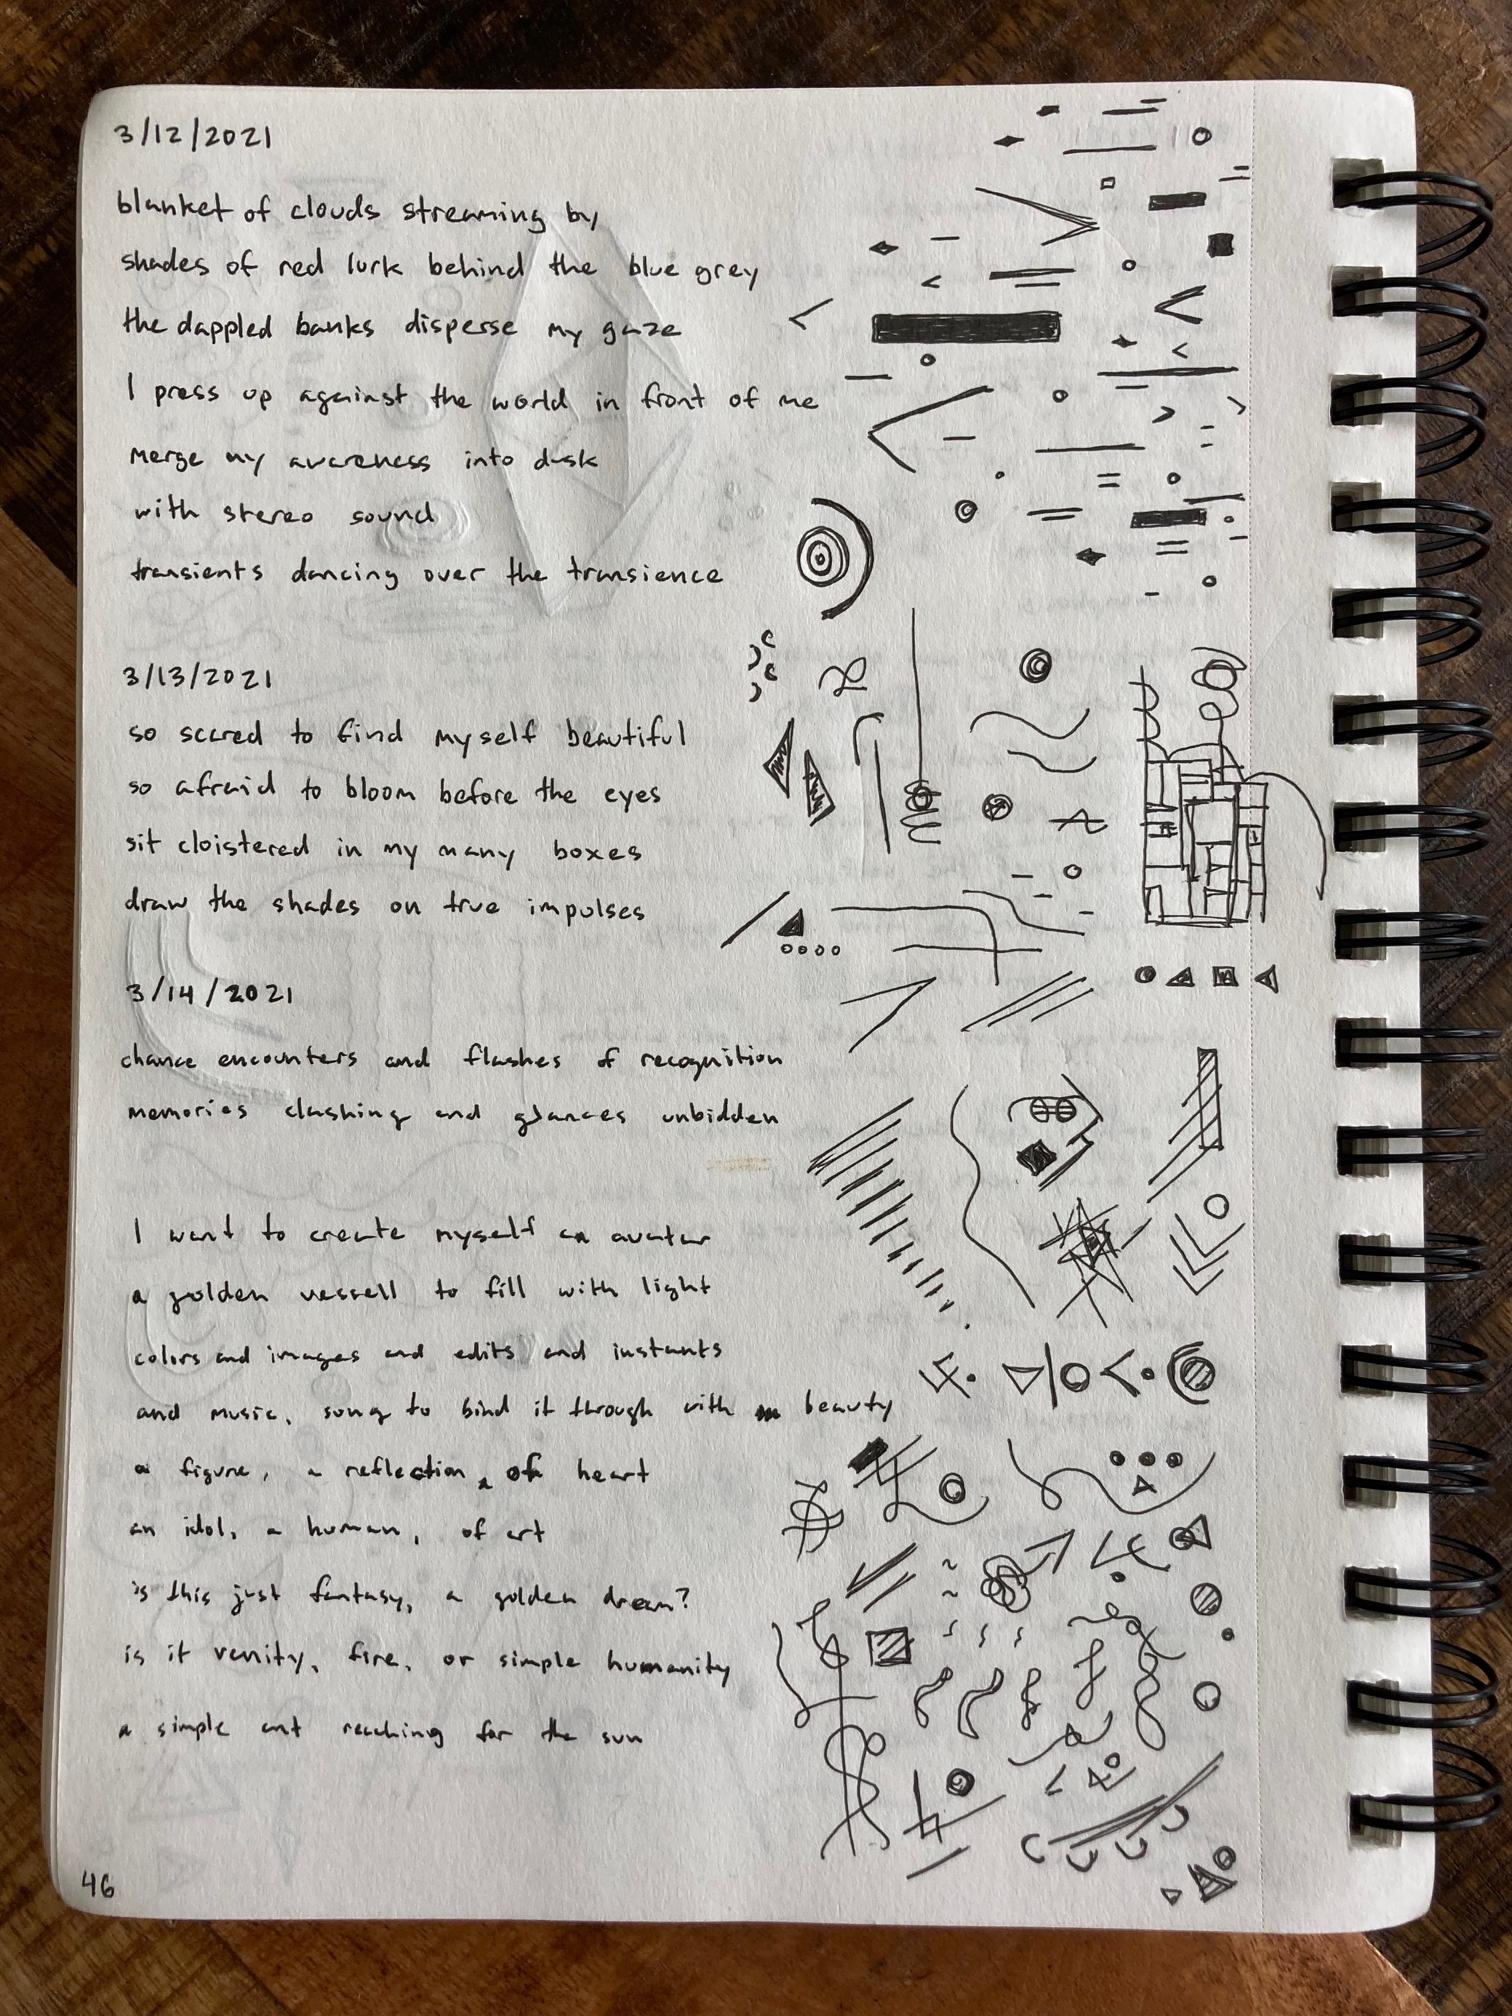 3/12/2021
blanket of clouds streaming by
shades of red lurk behind the blue grey
the dappled banks disperse my gaze
I press up against the world in front of me
merge my awareness into dusk
with stereo sound
transients dancing over the transience
3/13/2021
so scared to find myself beautiful
so afraid to bloom before the eyes
sit cloistered in my many boxes
draw the shades on true impulses
3/14/2021
chance encounters and flashes of recognition
memories clashing and glances unbidden
I want to create myself an avatar
a golden vessell to fill with light
colors and images and edits and instants
and music, song to bind it through with beauty
a figure, a reflection, of heart
an idol, a human, of art
is this just fantasy, a golden dream?
is it vanity, fire, or simple humanity
a simple ant reaching for the sun
46